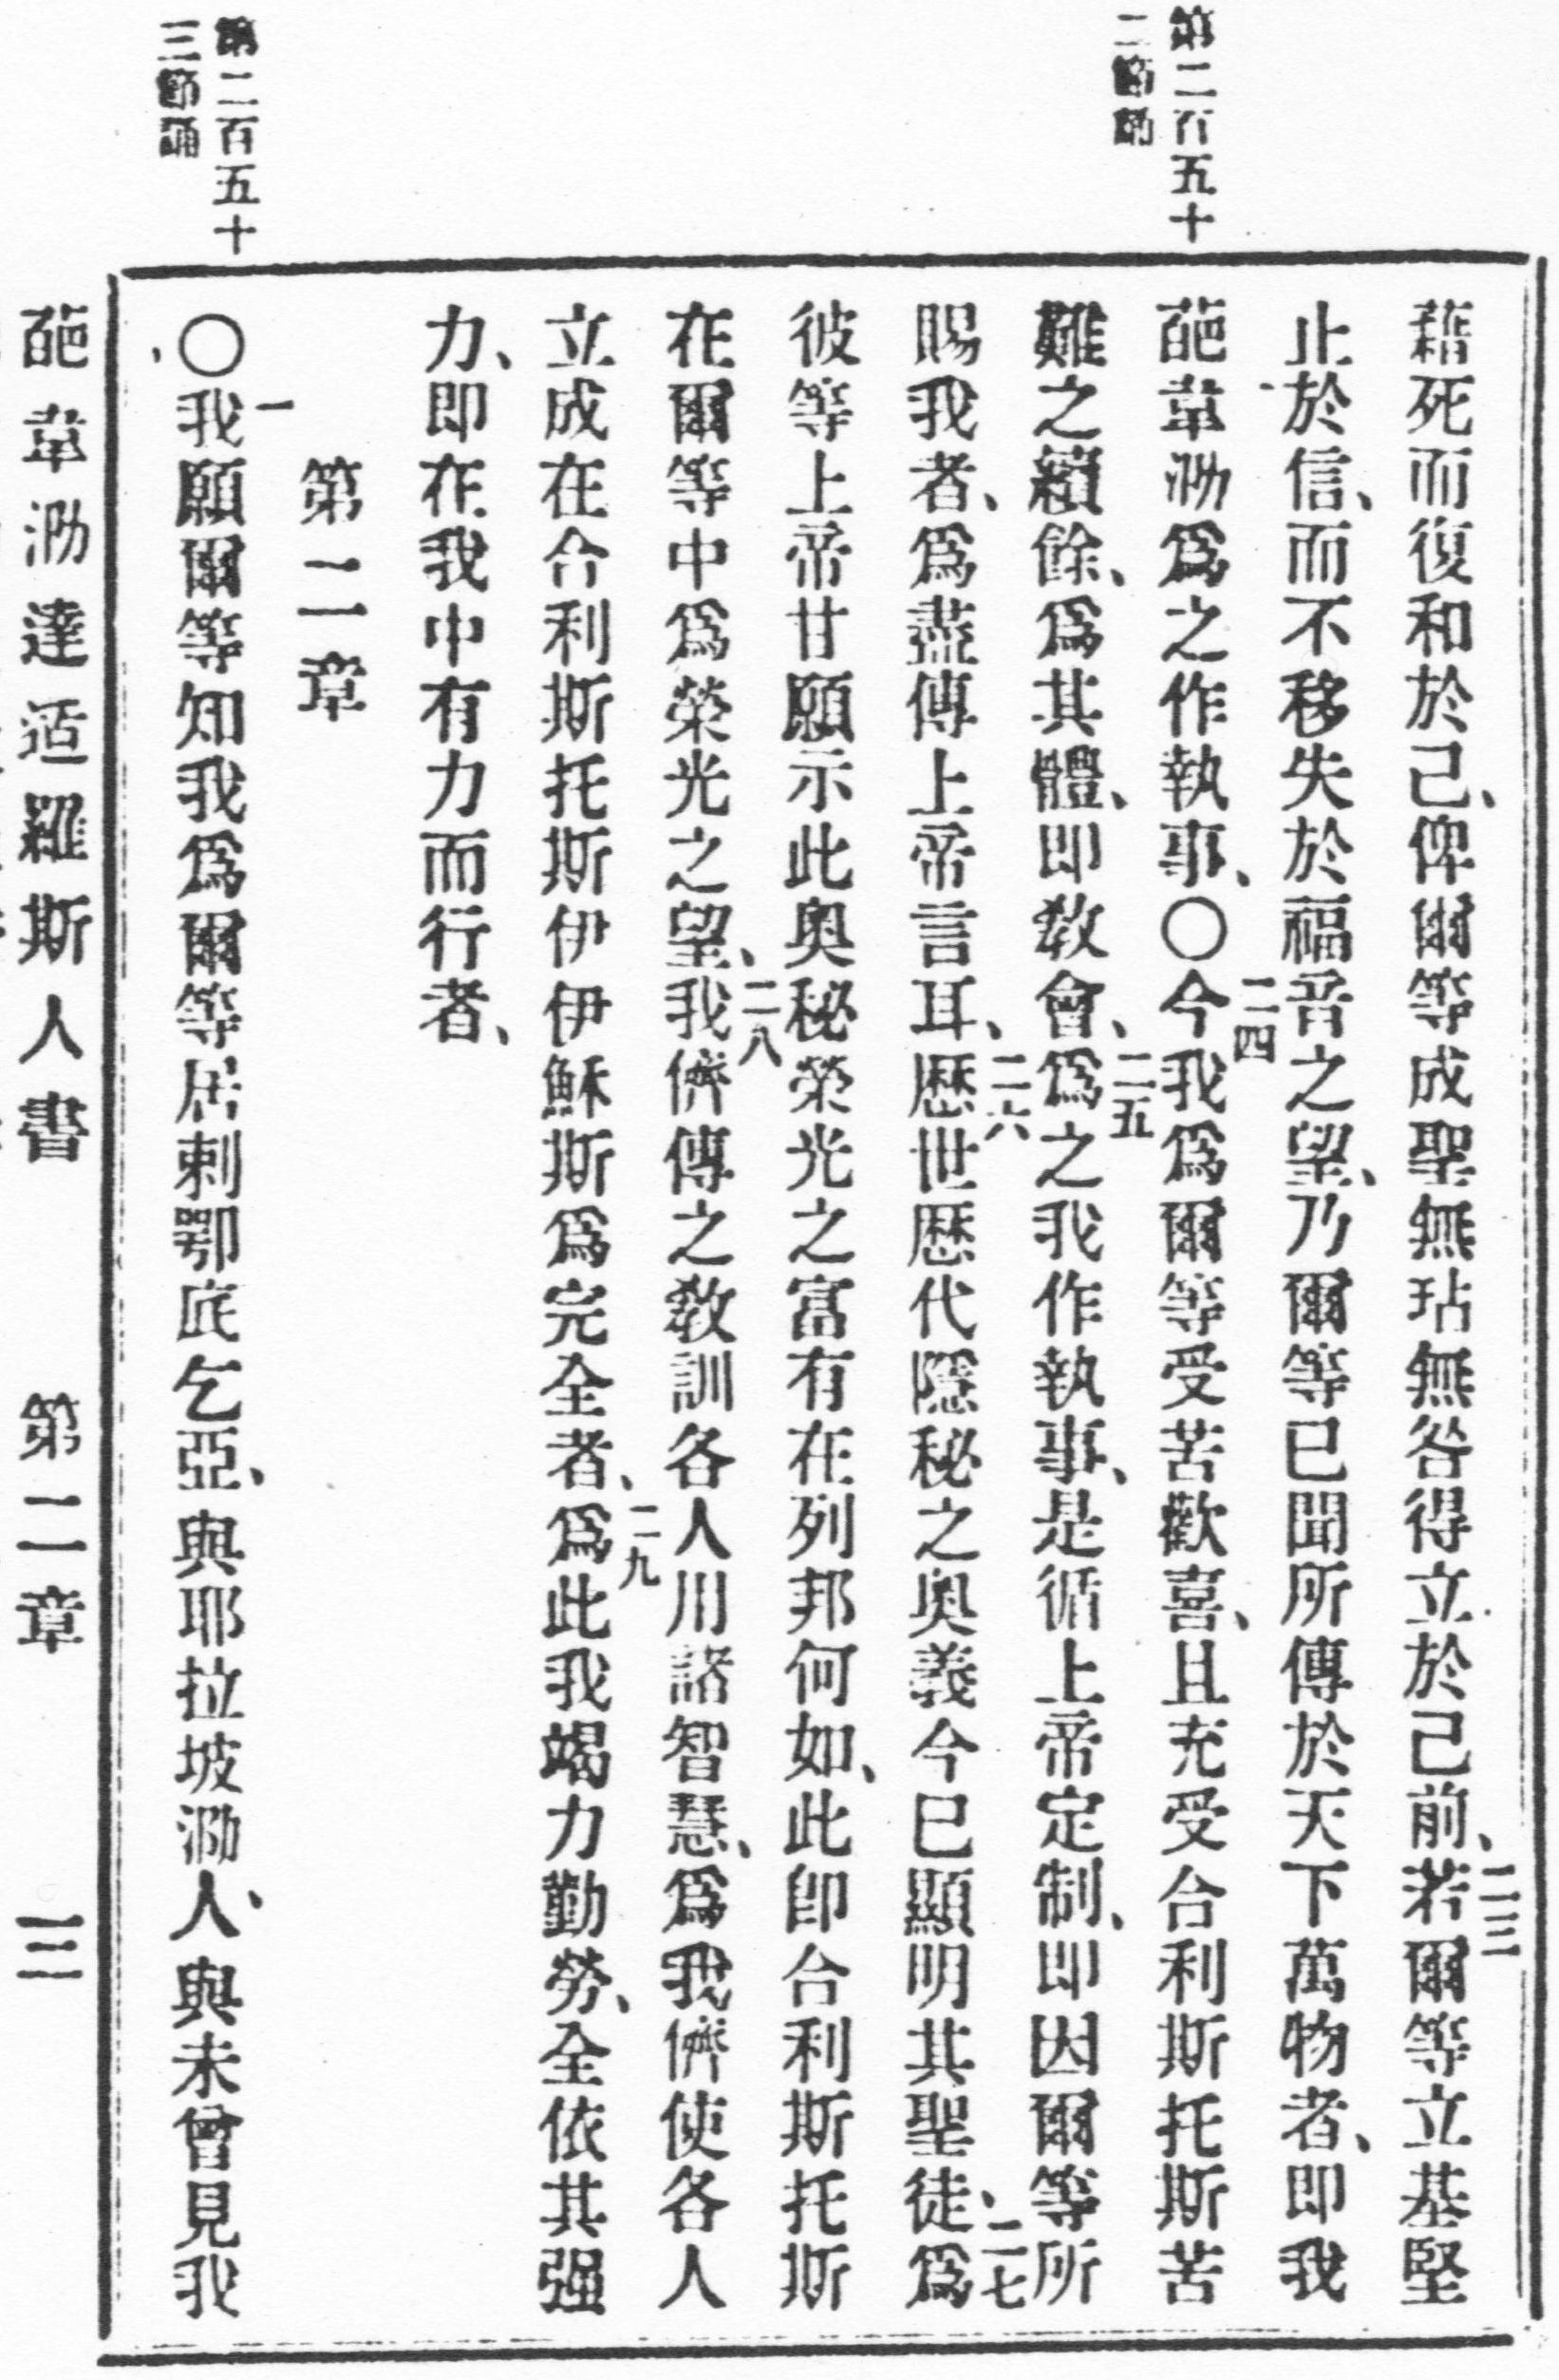 第二百五十
二節誦
藉死而復和於己、俾爾等成聖無玷無咎得立於己前、二三若爾等立基堅
止於信、而不移失於福音之望、乃爾等已聞所傳於天下萬物者、即我
葩韋泐爲之作執事、〇二四今我爲爾等受苦歡喜、且充受合利斯托斯苦
難之續餘、爲其體、即教會、二五爲之我作執事、是循上帝定制、即因爾等所
賜我者、爲盡傳上帝言耳、二六歷世歷代隱秘之奧義今已顯明其聖徒、二七爲
彼等上帝甘願示此奧秘榮光之富有在列邦何如、此即合利斯托斯
在爾等中爲榮光之望、二八我儕傳之教訓各人用諸智慧、爲我儕使各人
立成在合利斯托斯伊伊穌斯爲完全者、二九爲此我竭力勤勞、全依其强
力、即在我中有力而行者、
第二章
第二百五十
三節誦
〇一我願爾等知我爲爾等居剌鄂底乞亞、與耶拉坡泐人、與未曾見我
葩韋泐達适羅斯人書 第二章 三